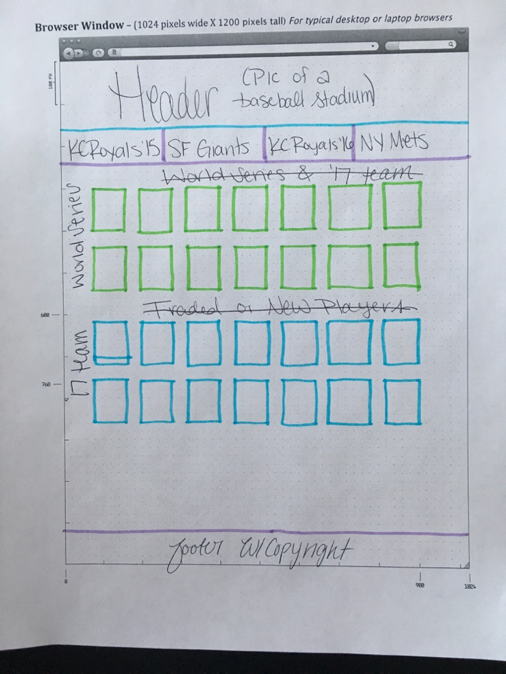 Browser Window – (1024 pixels wide X 1200 pixels tall) For typical desktop or laptop browsers
100 px
Header (Pic of a baseball stadium)
KC Royals '15 SF Giants KC Royals '16 NY Mets
World Series & '17 team
World Series
Traded or New Players
600
17 team
760
footer w/ Copyright
0 960 1024